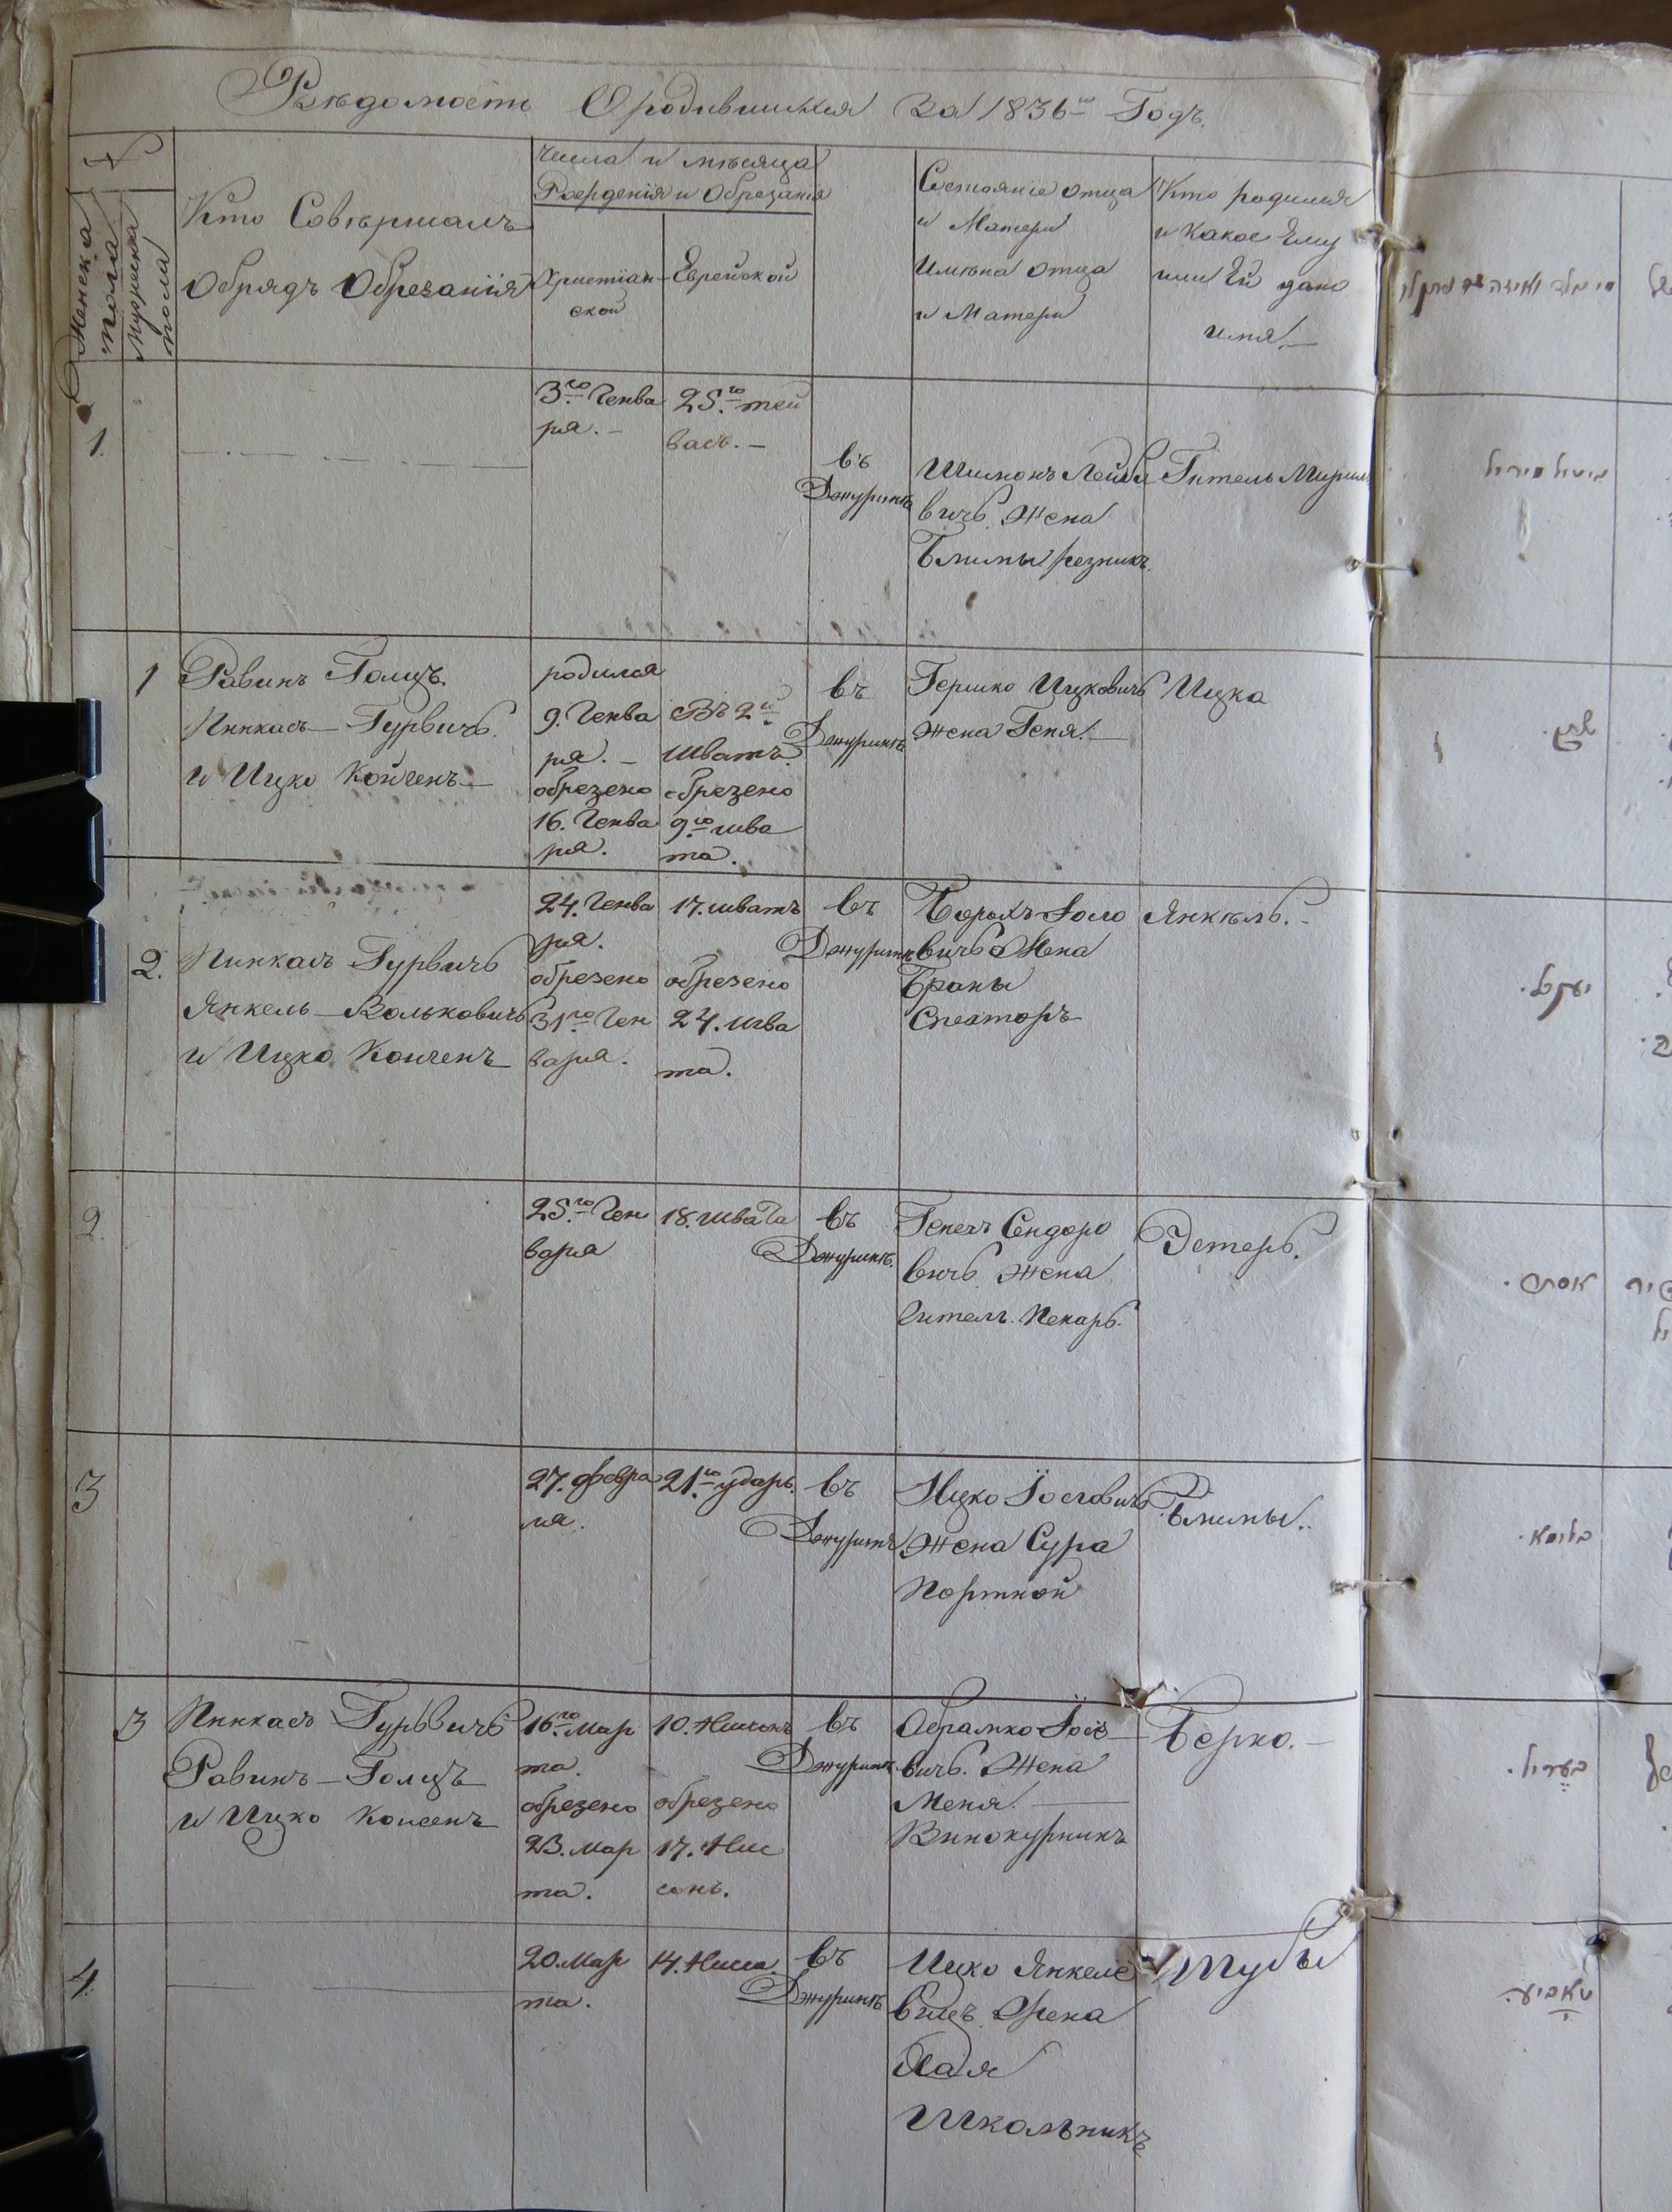 Вѣдомость О родившихся За 1836го Годъ.
№
Женска пола
Мужеска пола
Кто Совѣршалъ
Обрядъ Обрезанія
числа и мѣсяца
Рожденія и Обрезанія
Христіан-
ской
Еврейской
Состояніе отца
и Матери
Имѣна отца
и Матери
Кто родился
и какое Ему
или Ей дано
имя.
1.
3го Генва
ря.
25.го тей
васъ.
въ
Джуринѣ
Шимонъ Лейбо
вичъ Жена
Блимы резникъ.
Гитель Мирил
1
Равинъ Голцъ.
Пинкасъ Гурвичъ.
и Ицко Койченъ
родился
9. Генва
ря.
обрезено
16. Генва
ря.
Въ 2й
шватъ.
обрезено
9го шва
та.
въ
Джуринѣ
Гершко Ицковичъ
жена Геня.
Ицка
2.
Пинкасъ Гурвичъ
Янкель Вольковичъ
и Ицко Конченъ
24. Генва
ря.
обрезено
31го Ген
варя.
17. шватъ
обрезено
24. шва
та.
въ
Джуринѣ
Борохъ Іоло
вичъ Жена
Браны
Спекторъ
Янкѣль.
2.
25.го Ген
варя
18. швата
въ
Джуринѣ.
Генехъ Сендоро
вичъ. жена
Гитель. Пекарь.
Эстерь.
3
27. февра
ля.
21.го ударь.
въ
Джуринѣ
Ицко Іосговичъ
жена Сура
Портной
Блимы.
3
Пинкасъ Гурвичъ
Равинъ Голцъ
и Ицко Коисенъ
16.го Мар
та.
обрезено
23. мар
та.
10. Нисонъ
обрезено
17. Нис
сонъ.
въ
Джуринѣ
Абрамко Іось
вичъ. Жена
Меня.
Винокурникъ
Берко.
4.
20. Мар
та.
14. Нисса.
въ
Джуринѣ
Ицко Янкеле
вичъ. Жена
Хая
Школьникъ
Тубы
גיטיל מיריל
יעקל.
אסתר.
בלומא.
בעריל.
טאביע.